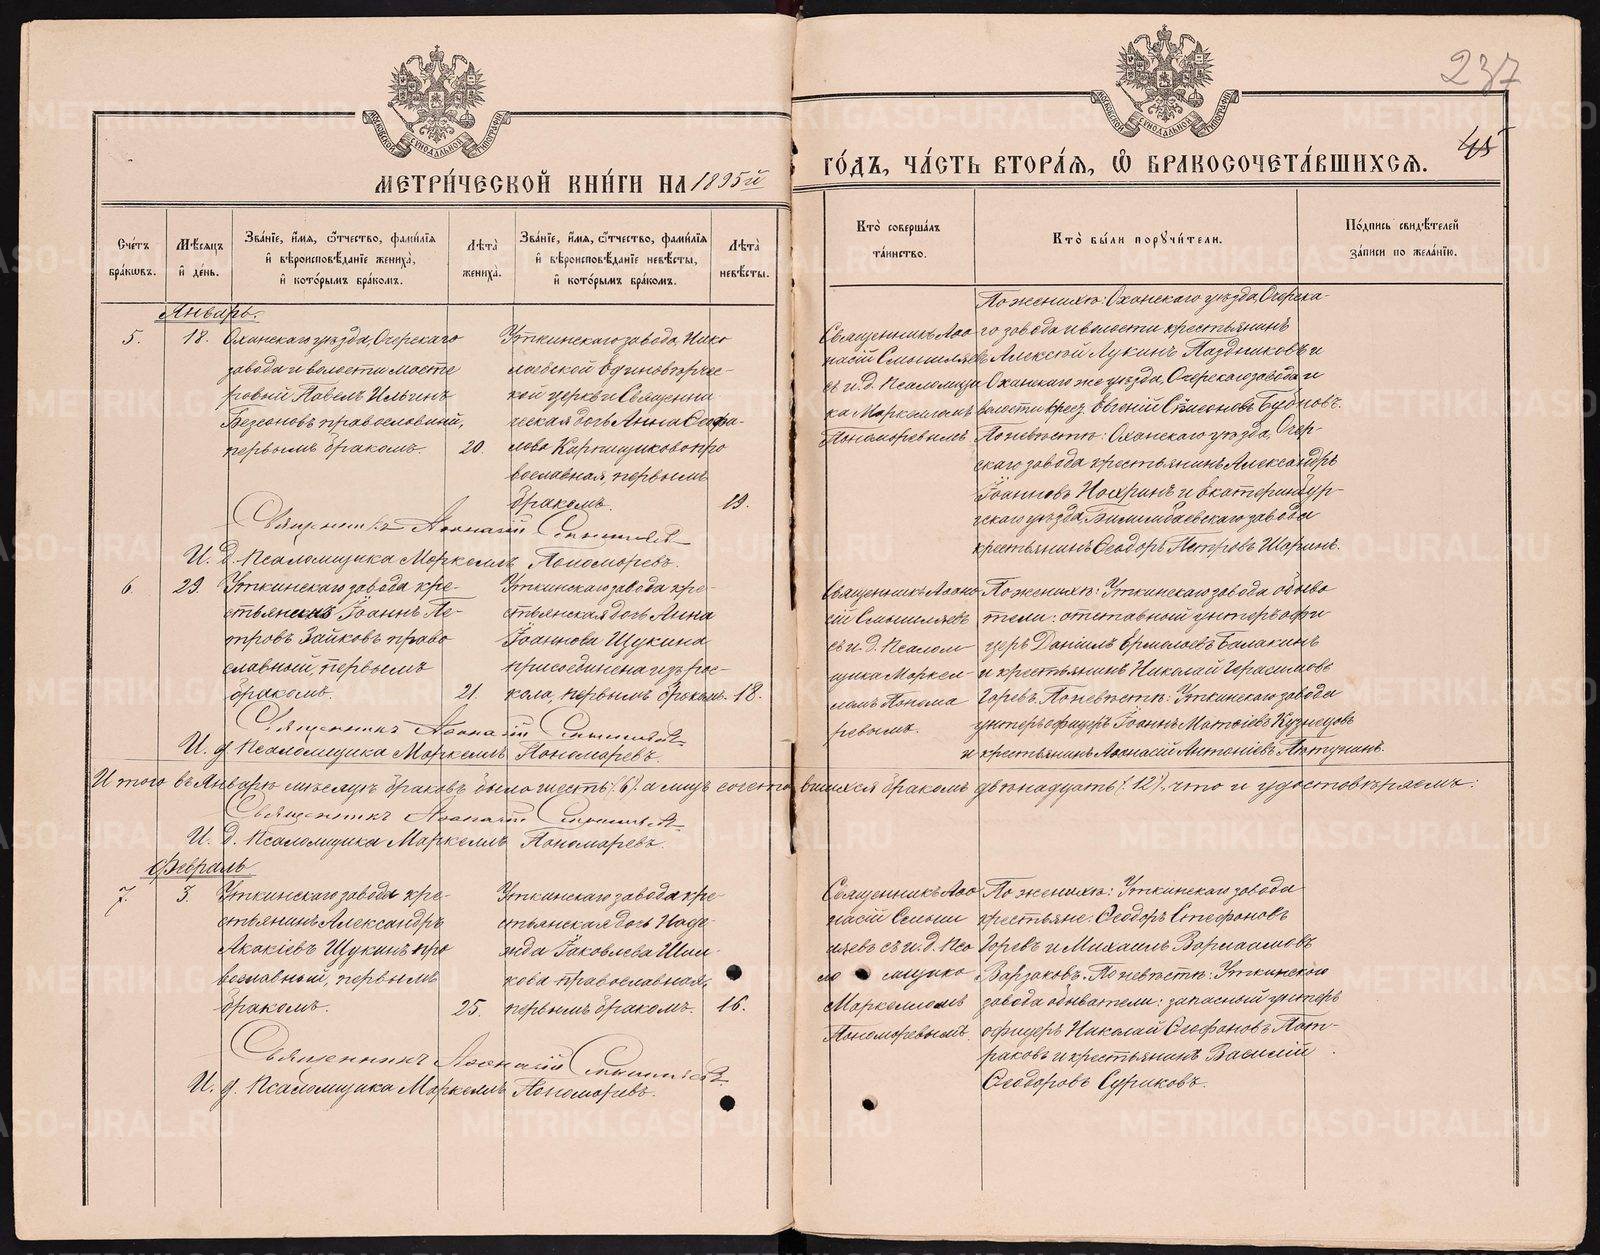 237
45
МЕТРИ́ЧЕСКОЙ КНИ́ГИ НА 1895й
ГО́ДЪ, ЧА́СТЬ ВТОРА́Я, Ѡ҆ БРАКОСОЧЕТА́ВШИХСЯ.
Сче́тъ бра́кѡвъ.
Мѣ́сяцъ и҆ де́нь.
Зва́нїе, и҆́мя, ѻ҆́тчество, фами́лїя
и҆ вѣроисповѣ́данїе жениха̀,
и҆ кото́рымъ бра́комъ.
Лѣ́та̀ жениха̀.
Зва́нїе, и҆́мя, ѻ҆́тчество, фами́лїя
и҆ вѣроисповѣ́данїе невѣ́сты,
и҆ кото́рымъ бра́комъ.
Лѣ́та̀ невѣ́сты.
Кто̀ соверша́лъ
та́инство.
Кто̀ бы́ли пору́чи́тели.
По́дпись свидѣ́телей
за́писи по жела́нїю.
Январь.
5.
18.
Оханскаго уѣзда, Очерскаго
завода и волости масте
ровой Павелъ Ильинъ
Берсеновъ православный,
первымъ бракомъ.
20.
Уткинскаго завода, Нико
лаевской Единовѣрчес-
кой церкви Священни
ческая дочь Анна
Карпинская пра
вославная первымъ
бракомъ.
19.
Священникъ Аѳа
насій Смышляевъ
съ и. д. Псаломщи
ка Маркелломъ
Пономаревымъ
По женихѣ: Оханскаго уѣзда, Очерска-
го завода и волости крестьянинъ
Алексѣй Лукинъ Паздниковъ и
Оханскаго же уѣзда, Очерскаго завода и
волости крест. Евгеній Симеоновъ
По невѣстѣ: Оханскаго уѣзда, Очер-
скаго завода крестьянинъ Александръ
Іоанновъ и Екатеринбур-
гскаго уѣзда, Билимбаевскаго завода
крестьянинъ Ѳеодоръ Петровъ Шаринъ.
Священникъ Аѳанасій Смышляевъ
И. д. Псаломщика Маркеллъ Пономаревъ.
6
29.
Уткинскаго завода кре-
стьянинъ Іоаннъ Пе-
тровъ Зайковъ право
славный, первымъ
бракомъ.
21.
Уткинскаго завода кре-
стьянская дочь Анна
Іоаннова Щукина
присоединена изъ рас-
кола, первымъ бракомъ.
18.
Священникъ Аѳана
сій Смышляевъ
съ и. д. Псалом
щика Маркел-
ломъ Понома
ревымъ.
По женихѣ: Уткинскаго завода обыва
тели: отставный унтеръ офи
церъ Даніилъ Ермолаевъ Балакинъ
и крестьянинъ Николай Герасимовъ
Горевъ. По невѣстѣ: Уткинскаго завода
унтеръ офицеръ Іоаннъ Матѳіевъ Кузнецовъ
и крестьянинъ Аѳанасій Антоніевъ
Священникъ Аѳанасій Смышляевъ
И. д. Псаломщика Маркеллъ Пономаревъ.
Итого въ Январѣ мѣсяцѣ браковъ было шесть (6). а лицъ сочетавшихся бракомъ двѣнадцать (12). что и удостовѣряемъ:
Священникъ Аѳанасій Смышляевъ
И. д. Псаломщика Маркеллъ Пономаревъ.
Февраль
7.
3.
Уткинскаго завода кре-
стьянинъ Александръ
Акакіевъ Щукинъ пра
вославный, первымъ
бракомъ.
25.
Уткинскаго завода кре
стьянская дочь Наде
жда Іаковлева Шиш
кова православная,
первымъ бракомъ.
16.
Священникъ Аѳа
насій Смыш
ляевъ съ и. д. Пса
ломщика
Маркелломъ
Пономаревымъ.
По женихѣ: Уткинскаго завода
крестьяне: Ѳеодоръ Стефановъ
Горевъ и Михаилъ Варлаамовъ
Варзаковъ. По невѣстѣ: Уткинскаго
завода обыватели: запасный унтеръ
офицеръ Николай Стефановъ Пат-
раковъ и крестьянинъ Василій
Ѳеодоровъ Суриковъ.
Священникъ Аѳанасій Смышляевъ
И. д. Псаломщика Маркеллъ Пономаревъ.
METRIKI.GASO-URAL.RU